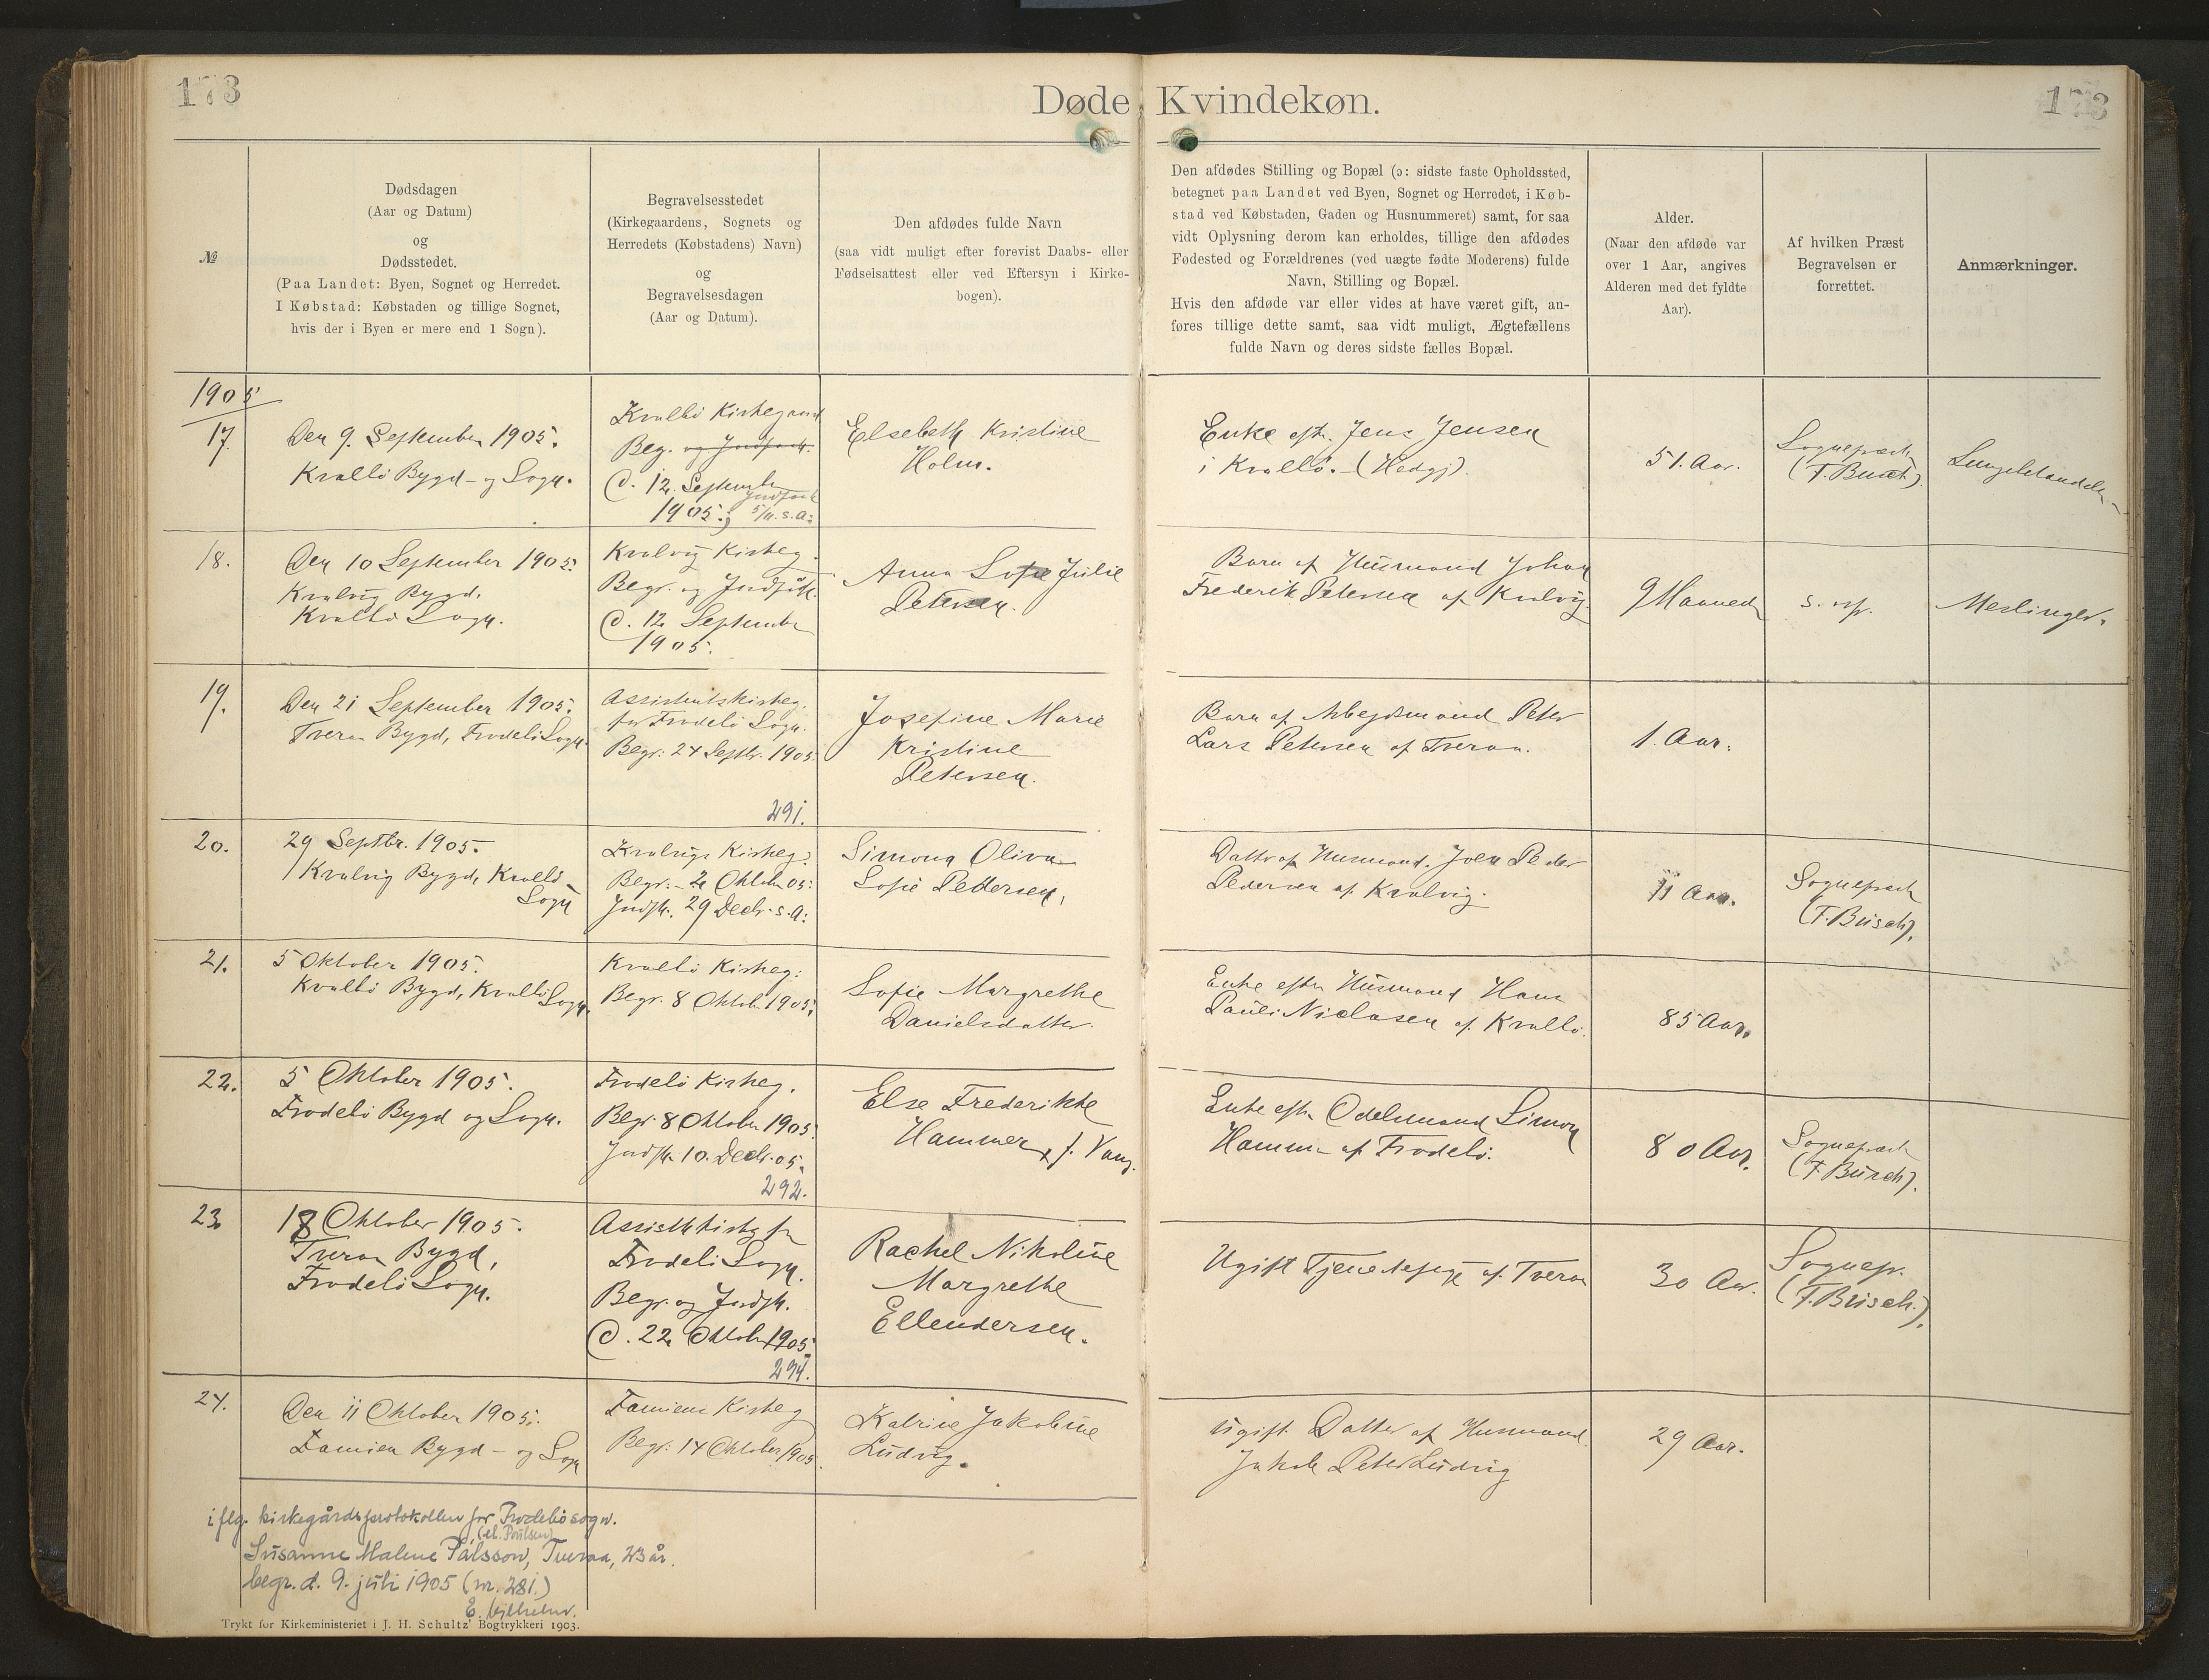 173
173
Døde Kvindekøn.
№
Dødsdagen
(Aar og Datum)
og
Dødsstedet.
(Paa Landet: Byen, Sognet og Herredet.
I Købstad: Købstaden og tillige Sognet,
hvis der i Byen er mere end 1 Sogn).
Begravelsesstedet
(Kirkegaardens, Sognets og
Herredets (Købstadens) Navn)
og
Begravelsesdagen
(Aar og Datum).
Den afdødes fulde Navn
(saa vidt muligt efter forevist Daabs- eller
Fødselsattest eller ved Eftersyn i Kirke-
bogen).
Den afdødes Stilling og Bopæl (ɔ: sidste faste Opholdssted,
betegnet paa Landet ved Byen, Sognet og Herredet, i Køb-
stad ved Købstaden, Gaden og Husnummeret) samt, for saa
vidt Oplysning derom kan erholdes, tillige den afdødes
Fødested og Forældrenes (ved uægte fødte Moderens) fulde
Navn, Stilling og Bopæl.
Hvis den afdøde var eller vides at have været gift, an-
føres tillige dette samt, saa vidt muligt, Ægtefællens
fulde Navn og deres sidste fælles Bopæl.
Alder.
(Naar den afdøde var
over 1 Aar, angives
Alderen med det fyldte
Aar).
Af hvilken Præst
Begravelsen er
forrettet.
Anmærkninger.
1905
17.
Den 9. September 1905.
Kvalbö Bygd- og Sogn.
Kvalbö Kirkegaard
Beg. og Jordfæst.
d. 12. September
1905.; Jordfæst
5/11. s.A:
Elsebeth Kristine
Holm.
Enke eft. Jens Jensen
i Kvalbö. (Hedgj).
51. Aar.
Sognepræst
(F. Busch).
18.
Den 10 September 1905.
Kvalvig Bygd,
Kvalbö Sogn.
Kvalvig Kirkeg.
Begr. og Jordfæst.
d. 12 September
1905.
Anna Sofie Julie
Petersen.
Barn af Husmand Johan
Frederik Petersen af Kvalvig.
9 Maaneder
Meslinger.
19.
Den 21 September 1905.
Tveraa Bygd, Frodebö Sogn.
Assistentskirkeg.
for Frodebö Sogn.
Begr: 24 Septbr. 1905.
291.
Josefine Marie
Kristine
Petersen.
Barn af Arbejdsmand Peter
Lars Petersen af Tveraa.
1. Aar.
20.
29 Septbr. 1905.
Kvalvig Bygd, Kvalbö
Sogn
Kvalvigs Kirkeg.
Begr. 2 Oktober 05.
Jordfæst. 29 Decbr. s.A:
Simona Oliva
Sofie Pedersen,
Datter af Husmand Joen Peder
Pedersen af Kvalvig.
11 Aar.
Sognepræst
(F. Busch).
21.
5 Oktober 1905.
Kvalbö Bygd, Kvalbö Sogn.
Kvalbö Kirkeg:
Begr. 8 Oktober 1905.
Sofie Margrethe
Danielsdatter.
Enke efter Husmand Hans
Pauli Niclasen af Kvalbö.
85 Aar.
22.
5 Oktober 1905.
Frodebö Bygd og Sogn.
Frodebö Kirkeg.
Begr. 8 Oktober 1905.
Jordfæst. 10. Decbr. 05.
292.
Else Frederikke
Hammer, f. Vang.
Enke eft. Odelsmand Simon
Hammer af Frodebö.
80 Aar.
Sognepræst
(F. Busch).
23
18 Oktober 1905.
Tveraa Bygd,
Frodebö Sogn.
Assistkirkeg for
Frodebö Sogn.
Begr. og Jordfæst.
d. 22. Oktober 1905.
294.
Rachel Nikoline
Margrethe
Ellendersen.
Ugift Tjenestepige af Tveraa
30 Aar.
Sognepr.
(F. Busch.).
24.
Den 11 Oktober 1905.
Famien Bygd- og Sogn
Famiens Kirkeg
Begr: 14 Oktober 1905.
Katrine Jakobine
Ludvig.
Ugift Datter af Husmand
Jakob Peter Ludvig
29 Aar.
iflg. kirkegårdsprotokollen for Frodebö sogn.
(el. Poulsen)
Susanne Malene Pálsson, Tveraa, 23 år.
begr. d. 9. juli 1905 (nr. 281.)
E. Vilhelm.
Trykt for Kirkeministeriet i J. H. Schultz' Bogtrykkeri 1903.